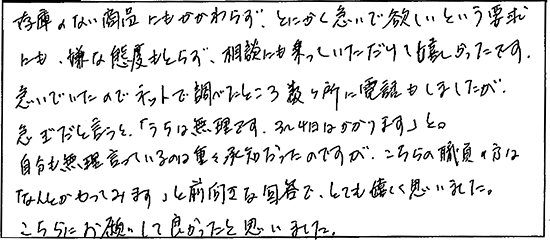 在庫のない商品にもかかわらず、とにかく急いで欲しいという要求
にも、嫌な態度もとらず、相談にも乗っていただけて嬉しかったです。
急いでいたのでネットで調べたところ数ヶ所に電話もしましたが、
急ぎだと言うと、「うちは無理です、3〜4日はかかります」と。
自分も無理言っているのは重々承知だったのですが、こちらの職員の方は
「なんとかやってみます」と前向きな回答で、とても嬉しく思いました。
こちらにお願いして良かったと思いました。